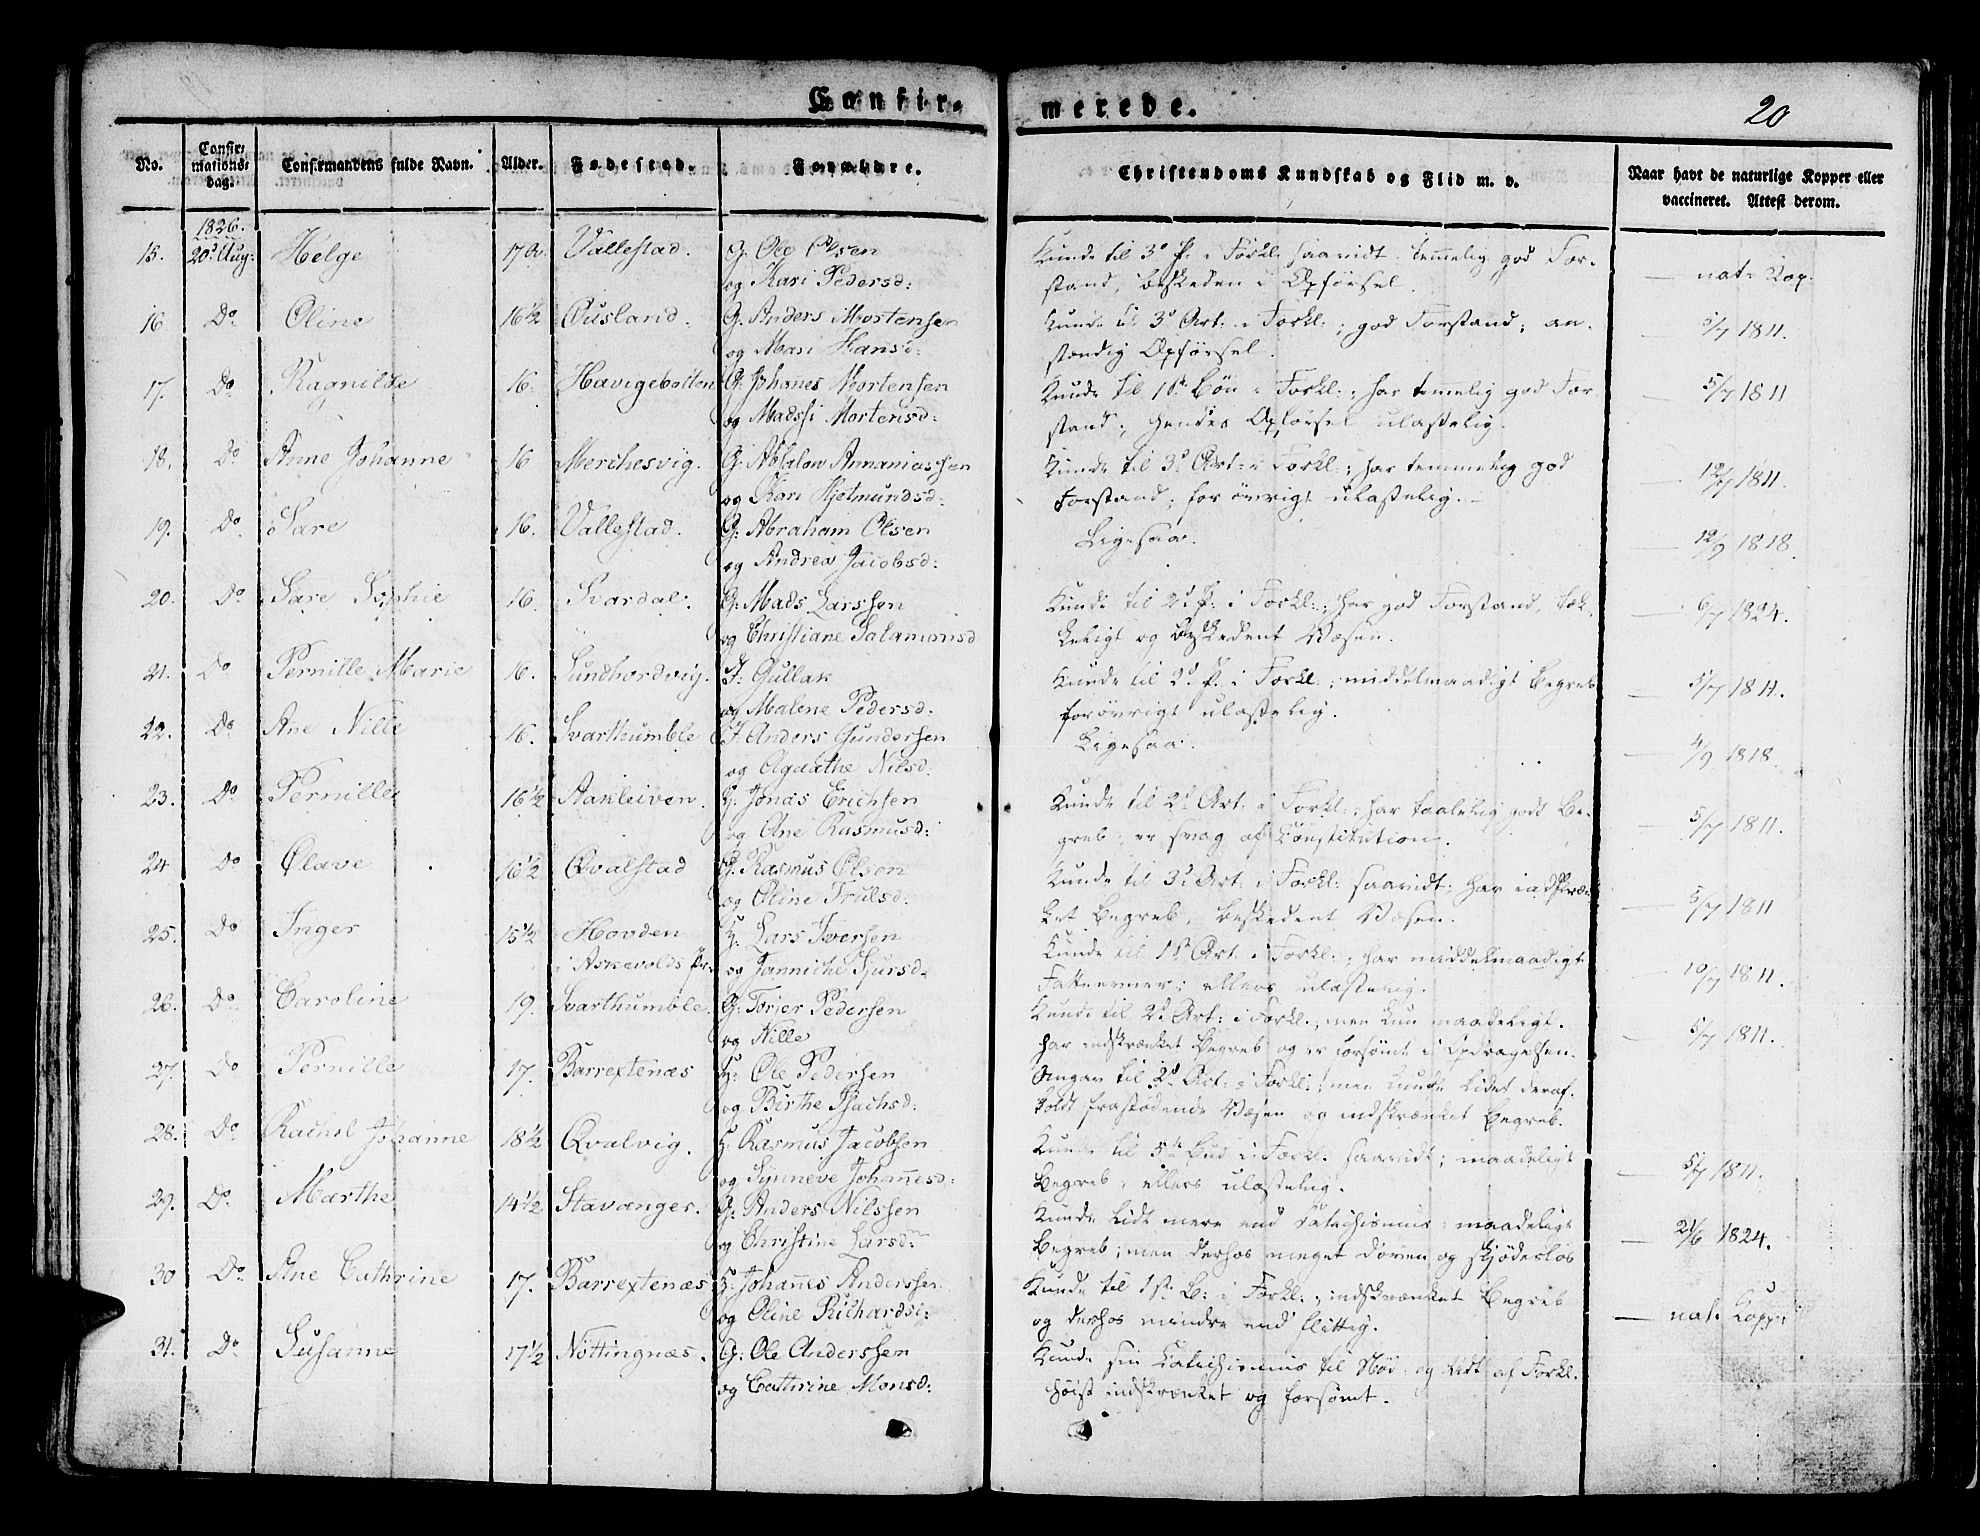 Confir-
merede.
20
No.
Confir-
mations-
dag.
Confirmandens fulde Navn.
Alder.
Fødested.
Forældre.
Christendoms Kundskab og Flid m. v.
Naar havt de naturlige Kopper eller
vaccineret. Attest derom.
1826.
15. 20d Aug: Helge 17 Vallestad. G. Ole Olsen
og Kari Pedersd:
Kunde til 3d P. i Forkl. saavidt. temmelig god For-
stand, beskeden i Opførsel.
nat. Kop.
16 Do Oline 16½ Ousland. G. Anders Mortensen
og Mari Hansd:
Kunde til 3d Art: i Forkl.; god Forstand; an-
stændig Opførsel.
5/7 1811.
17. Do Ragnilde 16. Havigebotten G. Johañes Mortensen
og Madssi Mortensd:
Kunde til 1st Bøn i Forkl.; har temmelig god For
stand; hendes Opførsel ulastelig.
5/7 1811
18. Do Anne Johanne 16 Merchesvig. G: Absalon Annaniassen
og Kari Hjelmundsd:
Kunde til 3d Art: i Forkl.; har temmelig god
Forstand; for øvrigt ulastelig.
12/7 1811.
19. Do Sare 16. Vallestad. G: Abraham Olsen
og Andrea Jacobsd:
Ligesaa.
12/9 1818.
20. Do Sare Sophie 16. Svardal. G: Mads Larssen
og Christiane Salamonsd
Kunde til 2d P: i Forkl.; har god Forstand, tæk-
keligt og beskedent Væsen.
6/7 1824.
21. Do Pernille Marie 16. Sundhordvig. I: Gullak
og Malene Pedersd.
Kunde til 2d P. i Forkl.; middelmaadigt Begreb
forøvrigt ulastelig.
5/7 1811.
22. Do Ane Nille 16. Svarthumble I. Anders Gundersen
og Agaathe Nilsd:
Ligesaa.
4/9 1818.
23. Do Pernille 16½ Aakleiven. H. Jonas Erichsen
og Ane Rasmusd:
Kunde til 2d Art: i Forkl.; har taalelig godt Be-
greb; er svag af Constitution.
5/7 1811.
24 Do Olave 16½ Qvalstad G. Rasmus Olsen
og Oline Trulsd:
Kunde til 3d Art: i Forkl: saavidt; har indskræn-
ket Begreb, beskedent Væsen.
5/7 1811
25. Do Inger 15½ Hovden H. Lars Iversen
i Askevolds Pr. og Janniche Sjursd.
Kunde til 1st Art. i Forkl.; har middelmaadigt
Fattenemme; ellers ulastelig.
10/7 1811.
26. Do Caroline 19. Svarthumble. G. Torjer Pedersen
og Nille
Kunde til 2d Art: i Forkl.; men kun maadeligt.
har indskrænket Begreb og er forsømt i Opdragelsen.
5/7 1811.
27. Do Pernille 17. Barrextenæs H: Ole Pedersen
og Birthe Isachsd:
til 2d Art: i Forkl.; men kunde lidet deraf.
koldt frastødende Væsen og indskrænket Begreb.
28. Do Rachel Johanne 18½ Qvalvig. H. Rasmus Jacobsen
og Synneve Johañesd:
Kunde til 5te Bud i Forkl. saavidt; maadeligt
Begreb; ellers ulastelig.
5/7 1811.
29. Do Marthe 14½ Stavanger. G. Anders Nilssen
og Christine Larsd:
Kunde lidt mere end Catechismus; maadeligt
Begreb; men derhos meget doven og skjødesløs
21/6 1824.
30 Do Ane Cathrine 17. Barrextenæs H. Johañes Anderssen
og Oline Richardsd:
Kunde til 1st B: i Forkl.; indskrænket Begreb
og derhos mindre end flittig.
nat. Kopper
31. Do Susanne 17½ Nöttingnæs. G: Ole Anderssen
og Cathrine Monsd:
Kunde sin Catechismus til Nød. og lidt af Forkl.
høist indskrænket og forsømt.